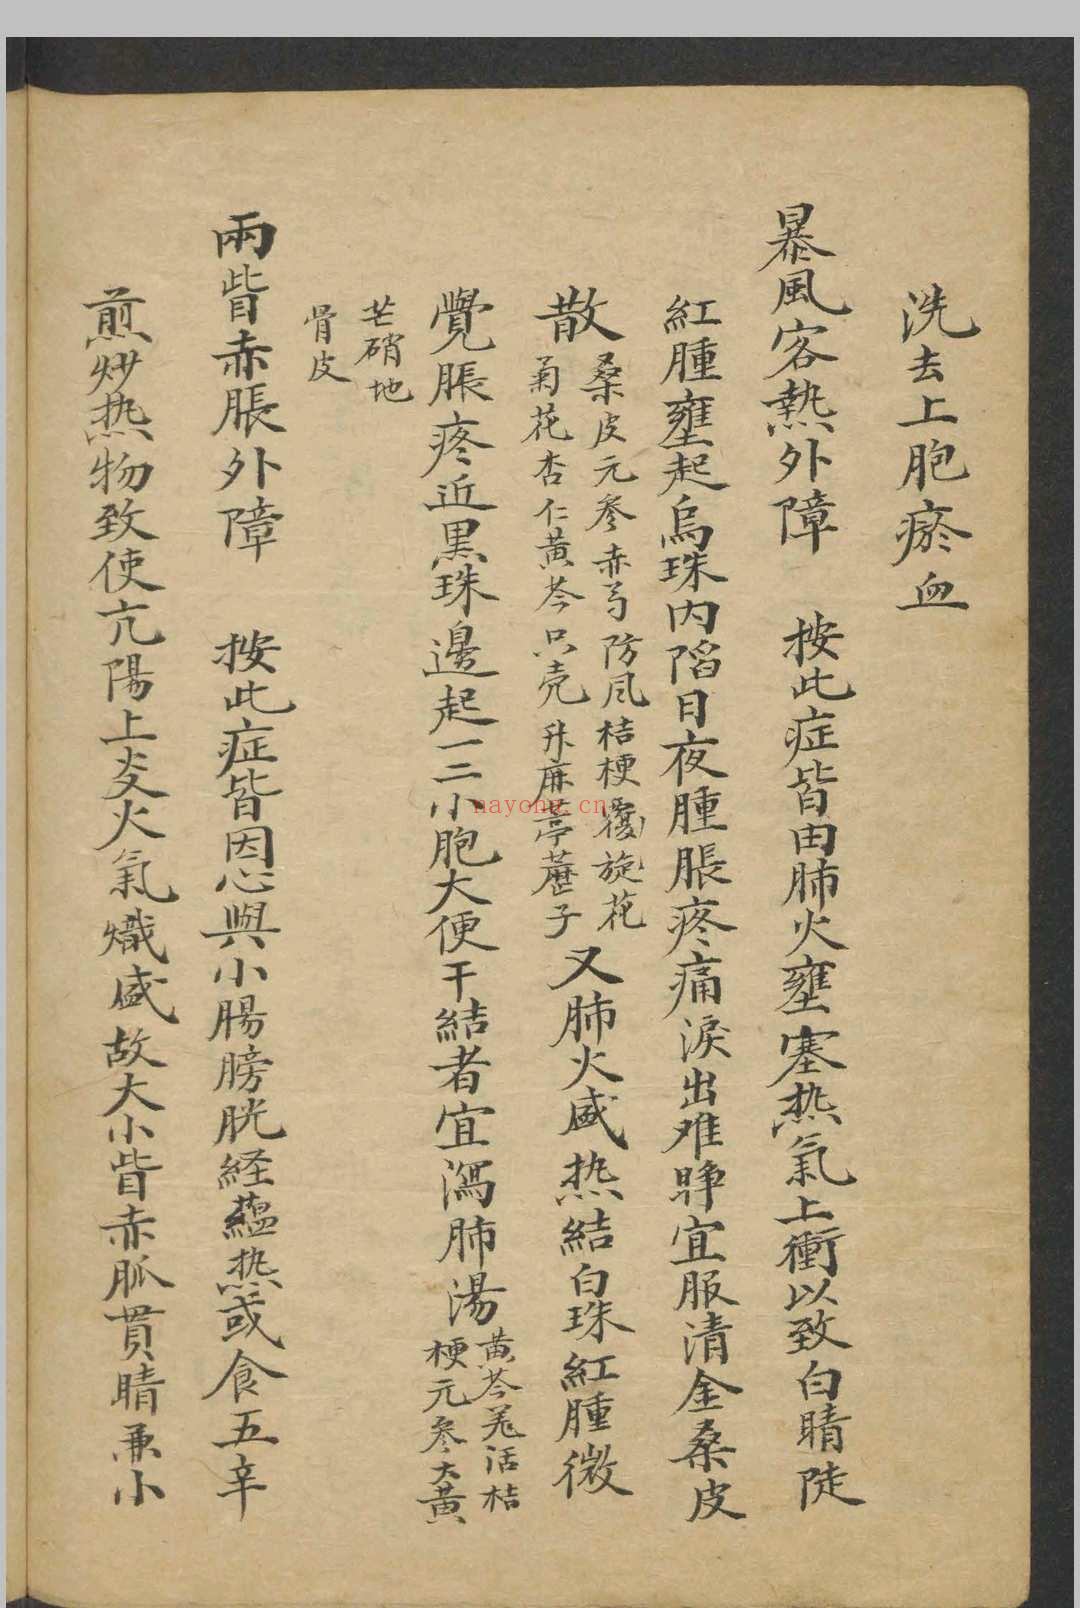 洗去上胞瘀血
暴風客熱外障 按此症皆由肺火壅塞热氣上衝以致白睛陡
紅腫壅起烏珠内陷日夜腫脹疼痛淚出难睜宜服清金桑皮
散
桑皮元參赤芍防风桔梗覆旋花
菊花杏仁黄芩只壳升麻葶藶子
又肺火盛热結白珠紅腫微
覺脹疼近黑珠邊起一二小胞大便干結者宜瀉肺湯
黄芩羌活桔
梗元參大黄
芒硝地
骨皮
兩眥赤脹外障 按此症皆因心與小腸膀胱経蘊热或食五辛
煎炒热物致使亢陽上炎火氣熾盛故大小眥赤脈貫睛兼小
nayong.cn